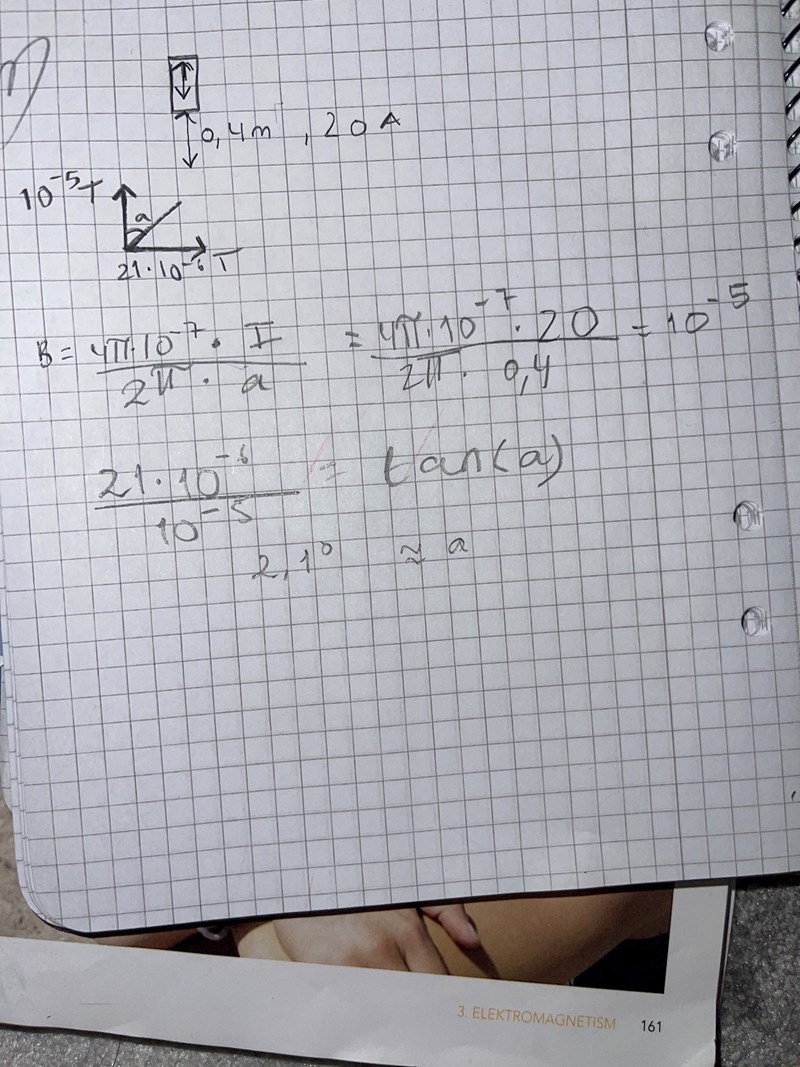 0,4m, 20A
10⁻⁵T
a
21·10⁻⁶ T
B = 4π·10⁻⁷ · I / 2π · a = 4π·10⁻⁷ · 20 / 2π · 0,4 = 10⁻⁵
21·10⁻⁶ / 10⁻⁵ = tan(a)
2,1° ≈ a
3. ELEKTROMAGNETISM 161